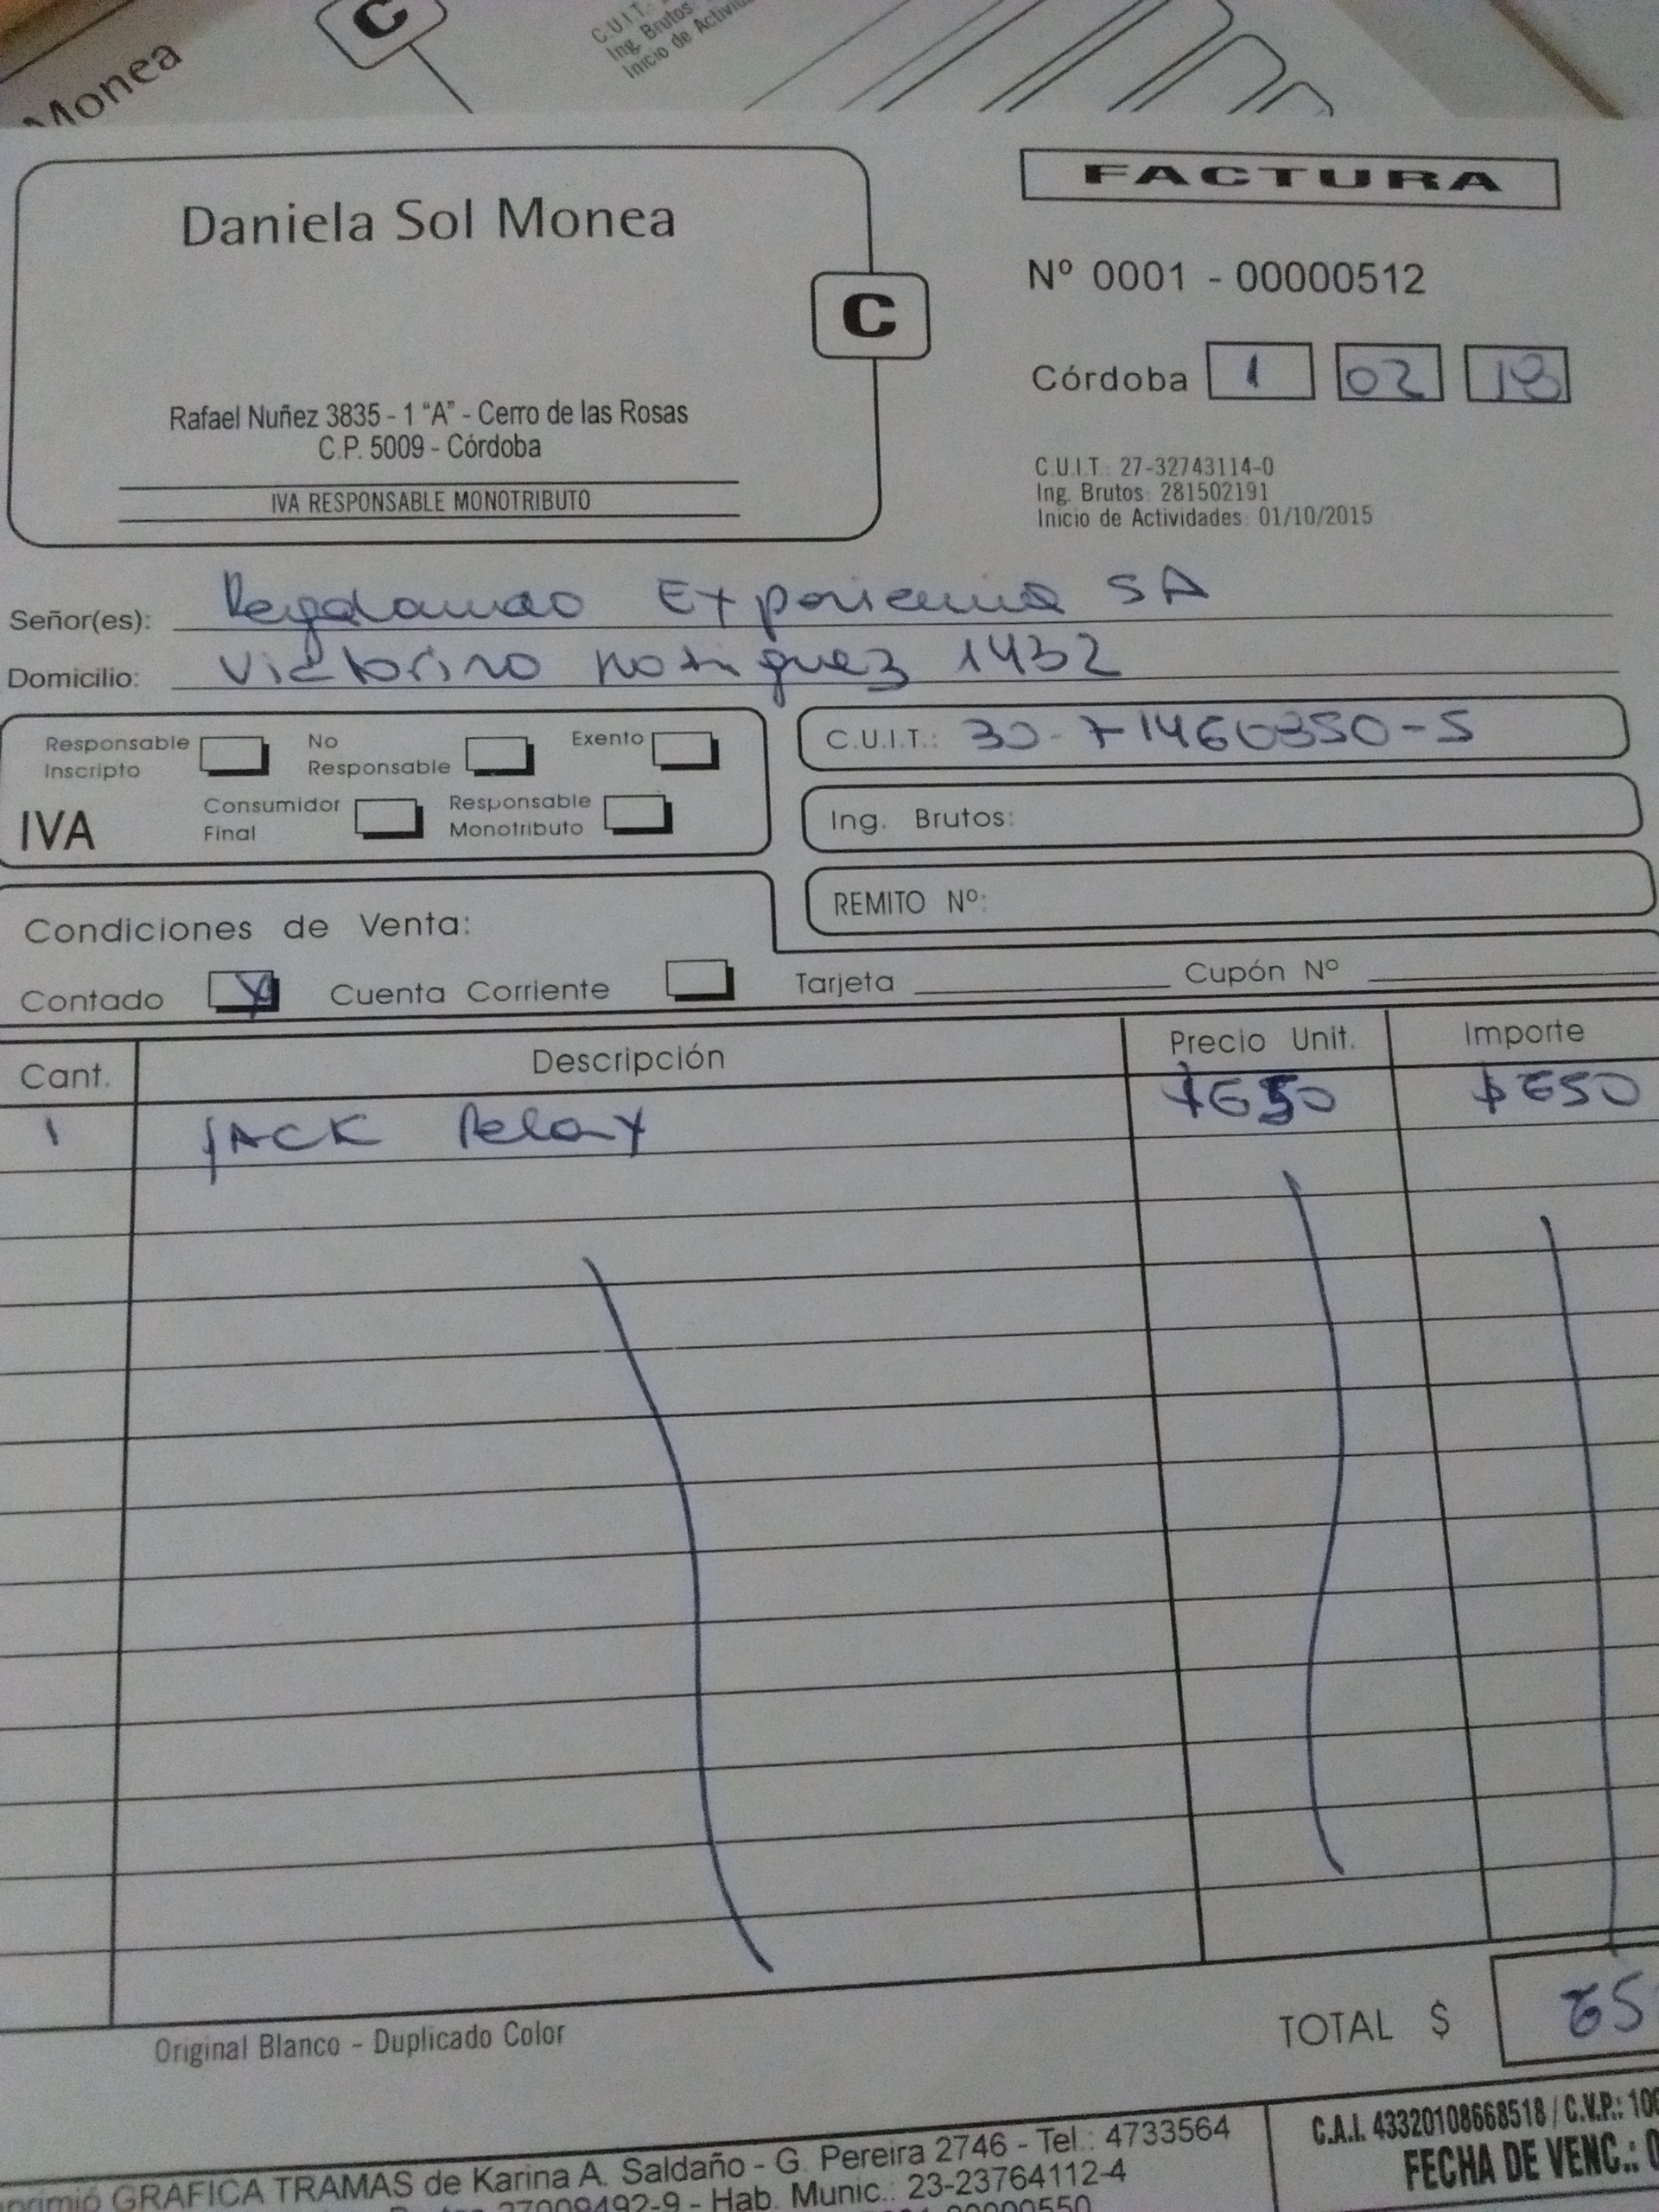 Monea
C
C.U.I.T.:
Ing. Brutos
Inicio de
FACTURA
Daniela Sol Monea
C
Nº 0001 - 00000512
Córdoba 1 02 18
Rafael Nuñez 3835 - 1 “A” - Cerro de las Rosas
C.P. 5009 - Córdoba
IVA RESPONSABLE MONOTRIBUTO
C.U.I.T.: 27-32743114-0
Ing. Brutos: 281502191
Inicio de Actividades: 01/10/2015
Señor(es): Regalando Experiencia SA
Domicilio: Victorino Rodriguez 1432
Responsable Inscripto
No Responsable
Exento
IVA
Consumidor Final
Responsable Monotributo
C.U.I.T.: 30-71460350-5
Ing. Brutos:
REMITO Nº:
Condiciones de Venta:
Contado X Cuenta Corriente Tarjeta Cupón Nº
Cant. Descripción Precio Unit. Importe
1 JACK Relax $650 $650
Original Blanco - Duplicado Color
TOTAL $ 65
GRAFICA TRAMAS de Karina A. Saldaño - G. Pereira 2746 - Tel.: 4733564
27009492-9 - Hab. Munic.: 23-23764112-4
C.A.I. 43320108668518 / C.V.P.: 10
FECHA DE VENC.: 0